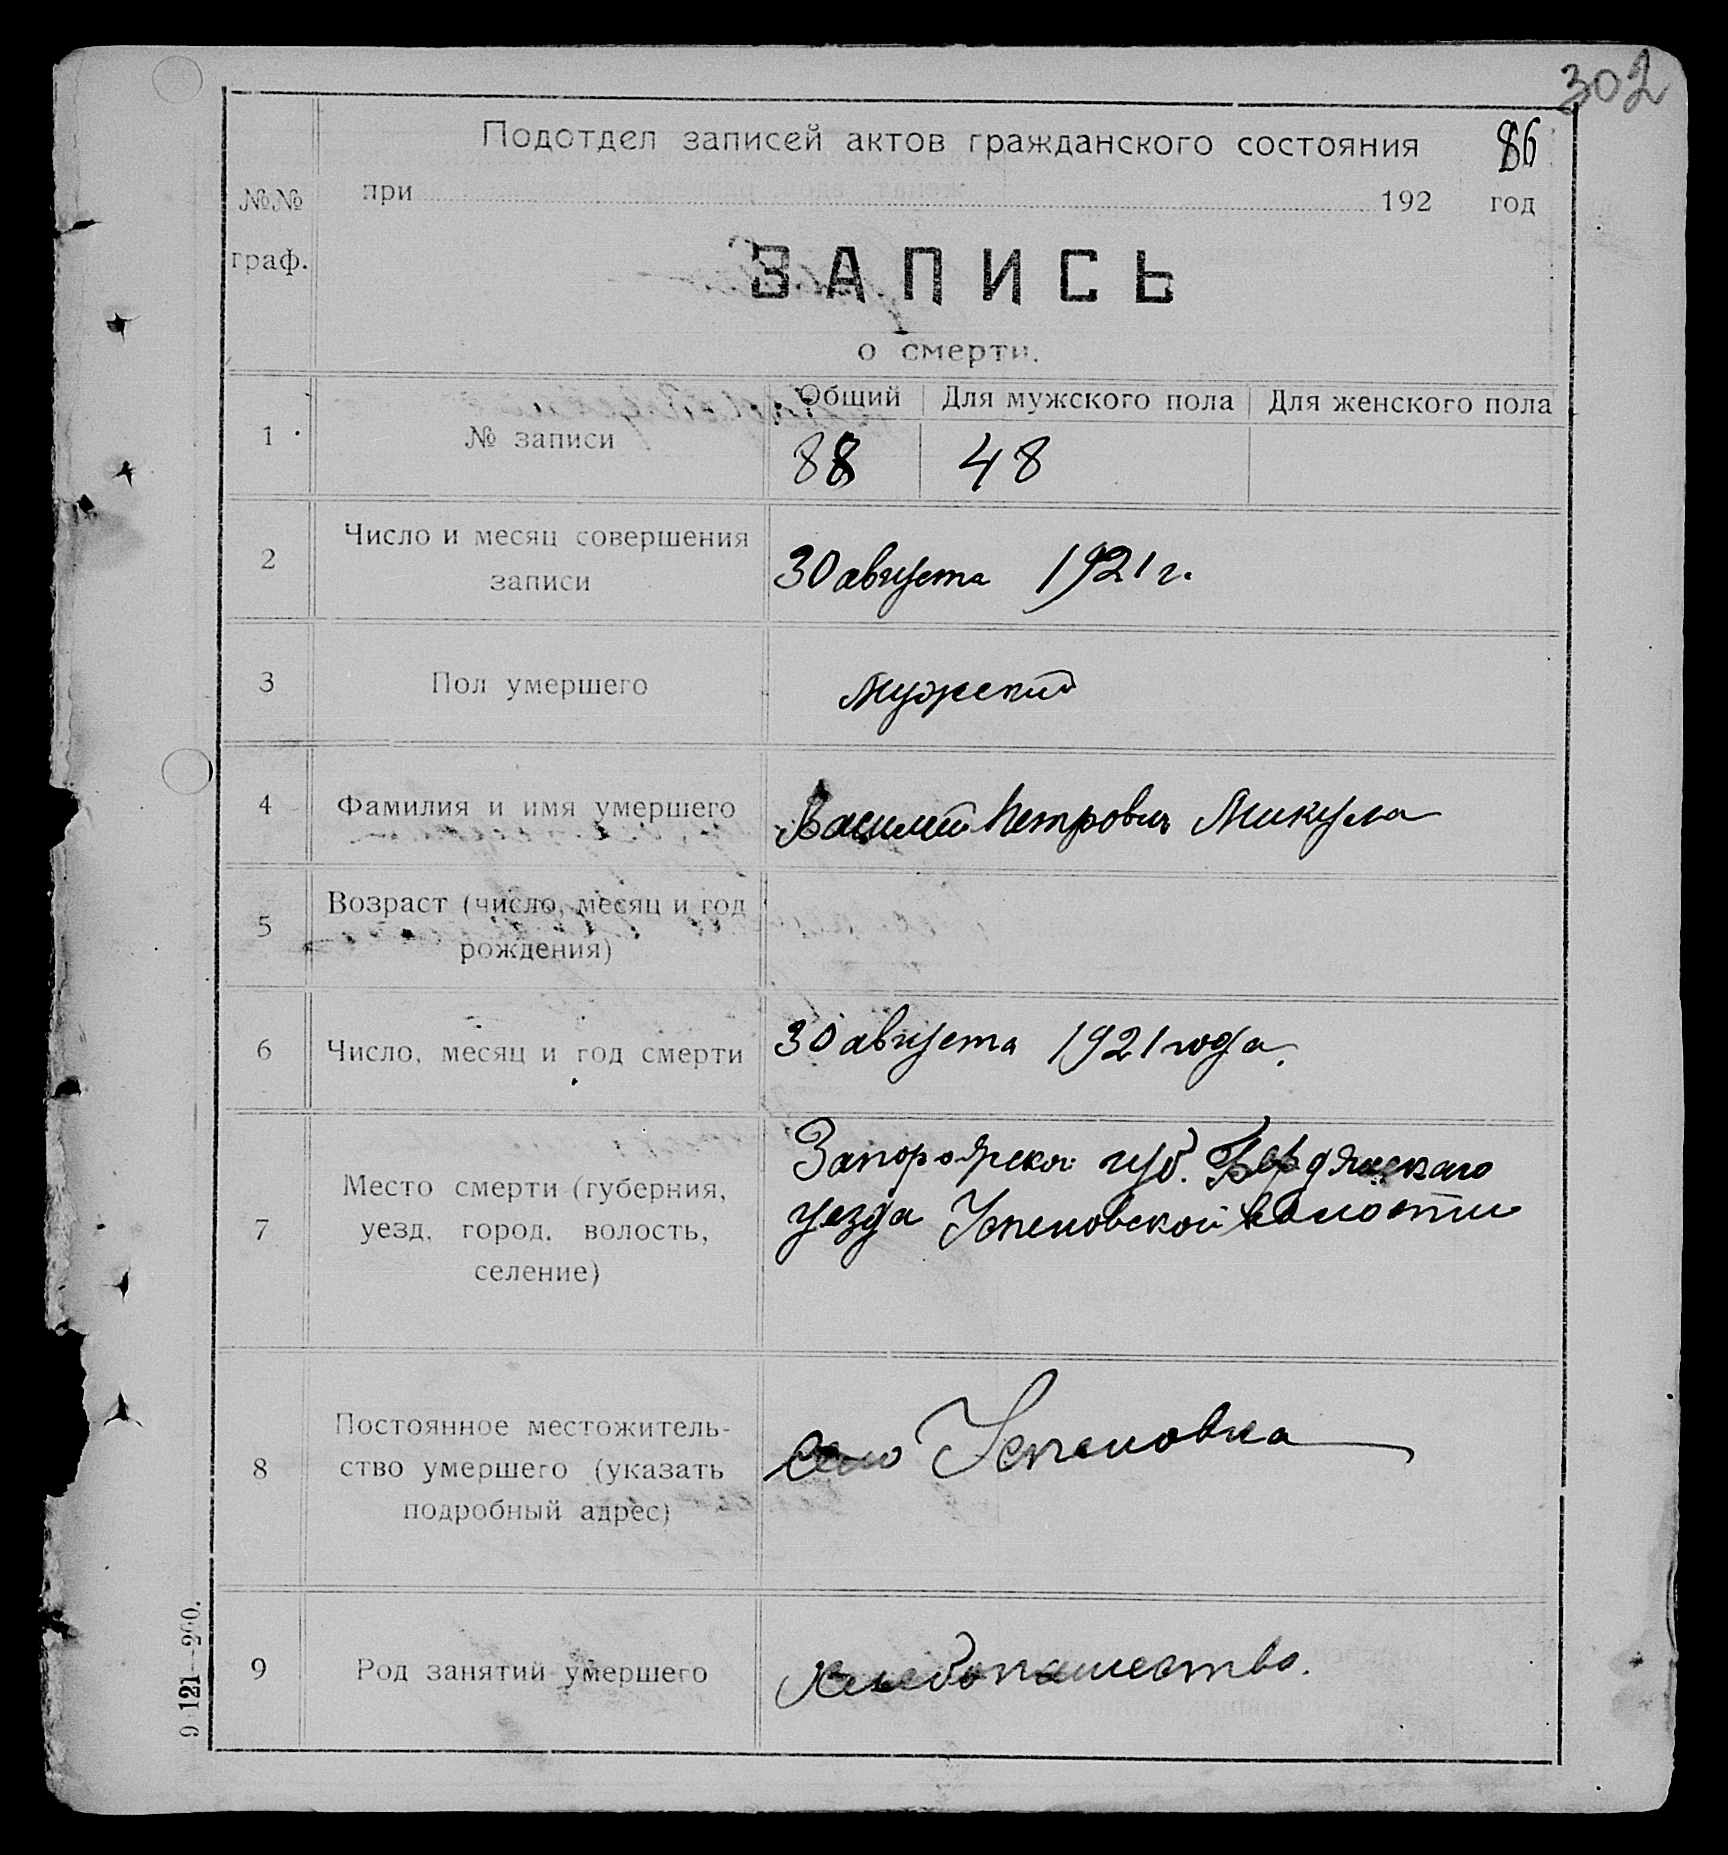 302
Подотдел записей актов гражданского состояния 86
при 192 год
№№ граф.
ЗАПИСЬ
о смерти.
Общий Для мужского пола Для женского пола
1 № записи 88 48
2 Число и месяц совершения
записи
30 августа 1921 г.
3 Пол умершего Мужский
4 Фамилия и имя умершего Василий Петрович Микула
5 Возраст (число, месяц и год
рождения)
6 Число, месяц и год смерти 30 августа 1921 года.
7 Место смерти (губерния,
уезд, город, волость,
селение)
Запорожской губ. Бердянскаго
уезда Успеновской волости
8 Постоянное местожитель-
ство умершего (указать
подробный адрес)
Село Успеновка
9 Род занятий умершего Хлебопашество.
9 121—200.